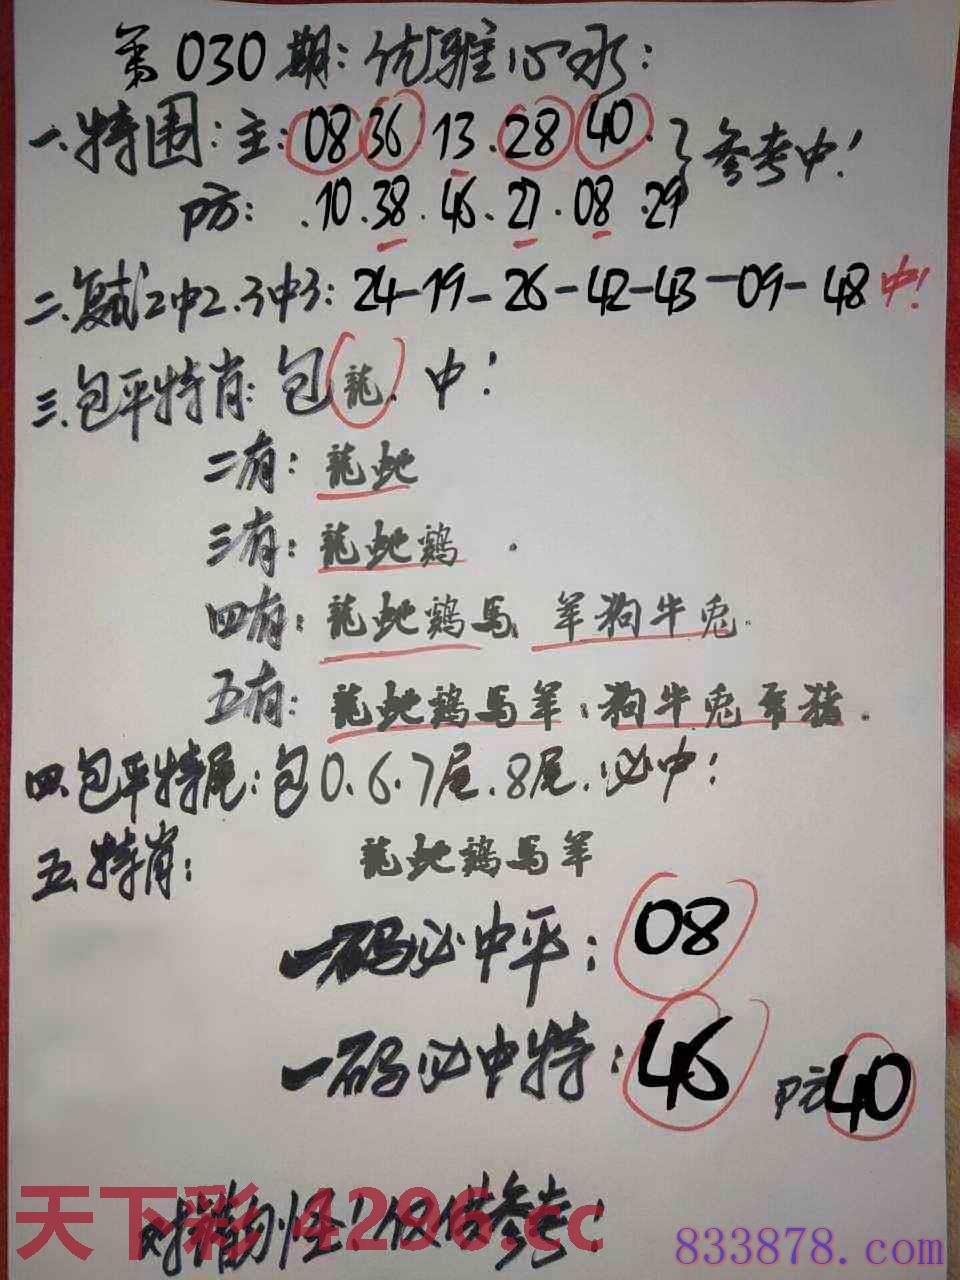 第030期:优雅心水:
一.特围:主:08 36.13.28 40.}参考中!
防:.10.38.46.27.08.29
二.复式2中2.3中3:24-19-26-42-43-09-48中!
三.包平特肖:包龍.中!
二有:龍虵
三有:龍虵鷄.
四有:龍虵鷄馬 羊狗牛兎.
五有:龍虵鷄馬羊.狗牛兎 猪.
四.包平特尾:包0.6.7尾.8尾.必中!
五.特肖:龍虵鷄馬羊
一码必中平:08
一码必中特:46 防40
对错勿怪!仅供参考!
天下彩4296.cc
833878.com